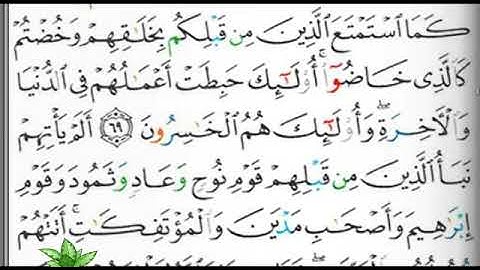 كَمَا ٱسْتَمْتَعَ ٱلَّذِينَ مِن قَبْلِكُم بِخَلَٰقِهِمْ وَخُضْتُمْ
كَٱلَّذِى خَاضُوٓا۟ ۚ أُو۟لَٰٓئِكَ حَبِطَتْ أَعْمَٰلُهُمْ فِى ٱلدُّنْيَا
وَٱلْءَاخِرَةِ ۖ وَأُو۟لَٰٓئِكَ هُمُ ٱلْخَٰسِرُونَ ٦٩ أَلَمْ يَأْتِهِمْ
نَبَأُ ٱلَّذِينَ مِن قَبْلِهِمْ قَوْمِ نُوحٍ وَعَادٍ وَثَمُودَ وَقَوْمِ
إِبْرَٰهِيمَ وَأَصْحَٰبِ مَدْيَنَ وَٱلْمُؤْتَفِكَٰتِ ۚ أَتَتْهُمْ